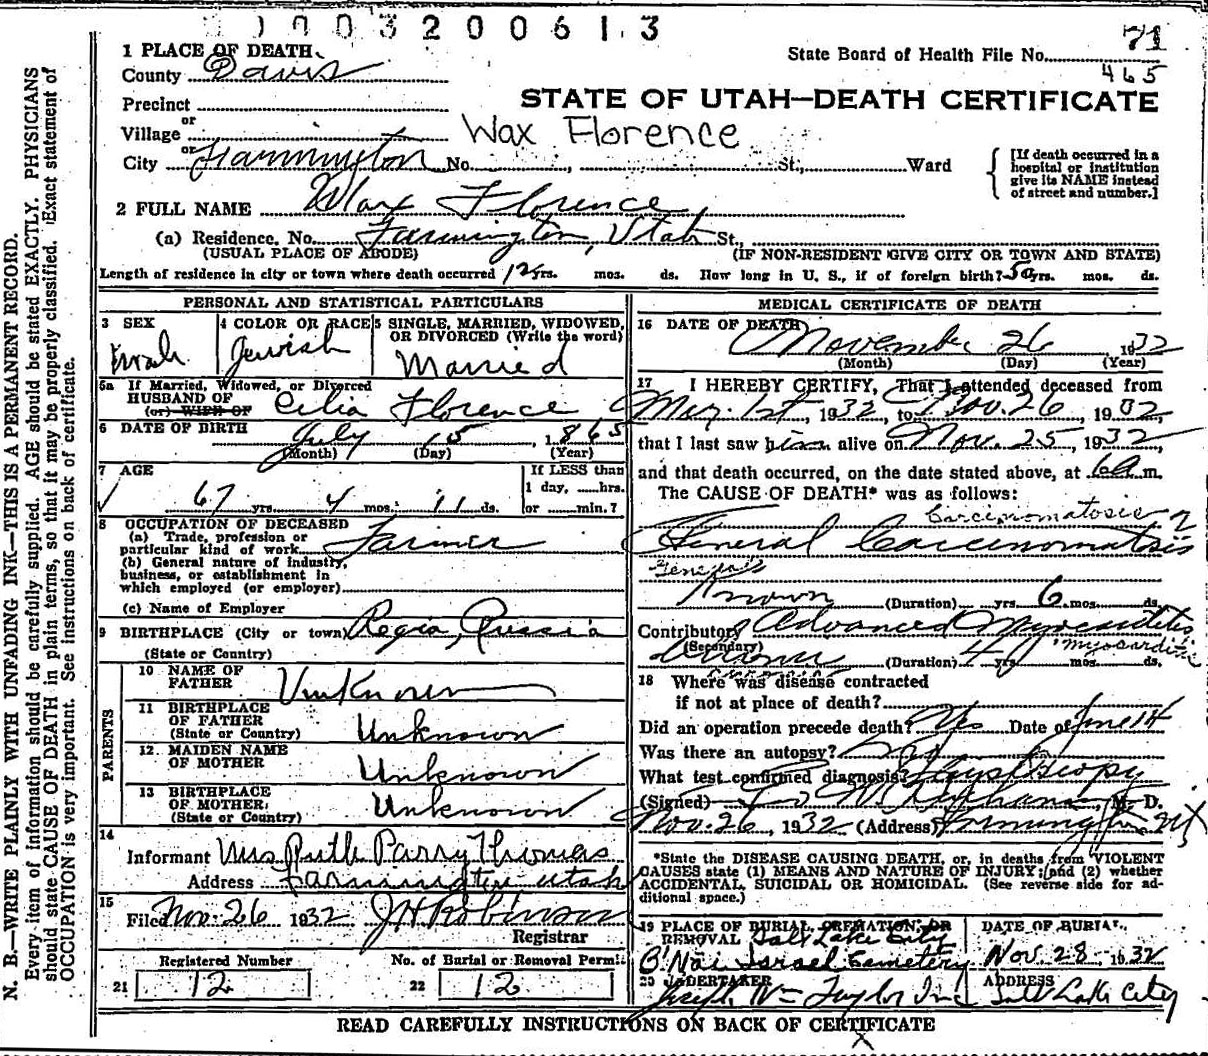 0003200613
71
State Board of Health File No.
465
1 PLACE OF DEATH
County Davis
STATE OF UTAH—DEATH CERTIFICATE
Precinct
or
Village
Wax Florence
City or Farmington No. St., Ward
[If death occurred in a hospital or institution give its NAME instead of street and number.]
2 FULL NAME Max Florence
(a) Residence, No. Farmington, Utah St.,
(USUAL PLACE OF ABODE) (IF NON-RESIDENT GIVE CITY OR TOWN AND STATE)
Length of residence in city or town where death occurred 12 yrs. mos. ds. How long in U. S., if of foreign birth? 50 yrs. mos. ds.
PERSONAL AND STATISTICAL PARTICULARS
3 SEX
Male
4 COLOR OR RACE
Jewish
5 SINGLE, MARRIED, WIDOWED, OR DIVORCED (Write the word)
Married
5a If Married, Widowed, or Divorced
HUSBAND OF
(or) WIFE OF Celia Florence
6 DATE OF BIRTH July 15, 1865
(Month) (Day) (Year)
7 AGE
67 yrs. 4 mos. 11 ds.
If LESS than
1 day, ......hrs.
or ......min.?
8 OCCUPATION OF DECEASED
(a) Trade, profession or
particular kind of work Farmer
(b) General nature of industry,
business, or establishment in
which employed (or employer)
(c) Name of Employer
9 BIRTHPLACE (City or town) Regia, Russia
(State or Country)
PARENTS
10 NAME OF
FATHER Unknown
11 BIRTHPLACE
OF FATHER
(State or Country) Unknown
12 MAIDEN NAME
OF MOTHER Unknown
13 BIRTHPLACE
OF MOTHER
(State or Country) Unknown
14
Informant Mrs Ruth Parry Thomas
Address Farmington Utah
15
Filed Nov. 26 1932 J H Robinson
Registrar
Registered Number
21 12
No. of Burial or Removal Permit
22 12
MEDICAL CERTIFICATE OF DEATH
16 DATE OF DEATH
November 26 1932
(Month) (Day) (Year)
17 I HEREBY CERTIFY, That I attended deceased from
1st, 1932, to Nov. 26, 1932,
that I last saw him alive on Nov. 25, 1932
and that death occurred, on the date stated above, at 6 a m.
The CAUSE OF DEATH* was as follows:
Carcinomatosis
General Carcinomatosis
General
(Duration) yrs. 6 mos. ds.
Contributory Advanced Myocarditis
(Secondary) Myocarditis
(Duration) 4 yrs mos. ds.
18 Where was disease contracted
if not at place of death?
Did an operation precede death? Yes Date of June 14
Was there an autopsy?
What test confirmed diagnosis?
(Signed) M. D.
Nov. 26, 1932 (Address) Farmington
*State the DISEASE CAUSING DEATH, or, in deaths from VIOLENT
CAUSES state (1) MEANS AND NATURE OF INJURY; and (2) whether
ACCIDENTAL, SUICIDAL OR HOMICIDAL. (See reverse side for ad-
ditional space.)
19 PLACE OF BURIAL, CREMATION, OR
REMOVAL Salt Lake City
B'Nai Israel Cemetery
DATE OF BURIAL
Nov. 28 1932
20 UNDERTAKER
Joseph Wm Taylor Inc
ADDRESS
Salt Lake City
READ CAREFULLY INSTRUCTIONS ON BACK OF CERTIFICATE
N. B.—WRITE PLAINLY WITH UNFADING INK—THIS IS A PERMANENT RECORD.
Every item of information should be carefully supplied. AGE should be stated EXACTLY. PHYSICIANS
should state CAUSE OF DEATH in plain terms, so that it may be properly classified. Exact statement of
OCCUPATION is very important. See instructions on back of certificate.